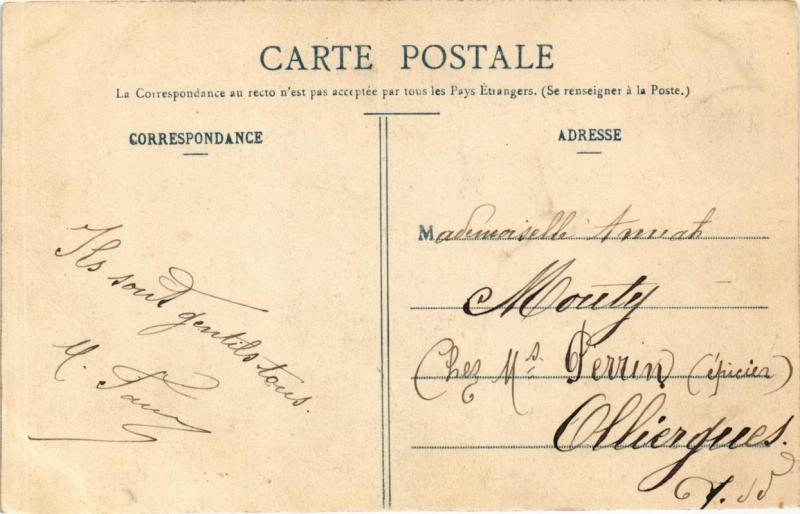 CARTE POSTALE
La Correspondance au recto n'est pas acceptée par tous les Pays Étrangers. (Se renseigner à la Poste.)
CORRESPONDANCE
Ils sont gentils tous.
M.
ADRESSE
Mademoiselle
Mouty
Chez Ms. Perrin (épicier)
Olliergues.